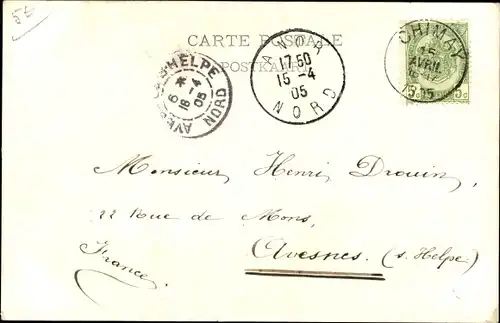 55
CARTE POSTALE
POSTKAART
AVESNES S HELPE
6 *
16 -4
05
NORD
NORD
17 50
15 -4
05
NORD
CHIMAY
15
AVRIL
1905
5c 5c
Monsieur Henri Drouin,
22 Rue de Mons,
Avesnes (s. Helpe)
(France)